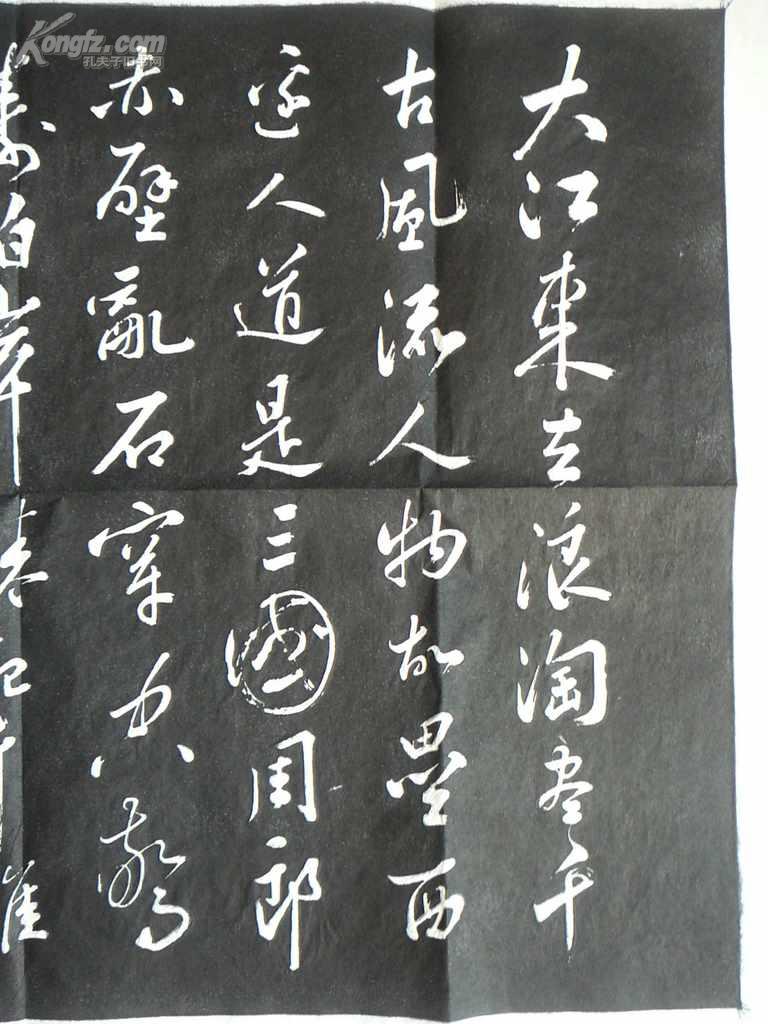 大江東去浪淘盡千
古風流人物故壘西
邊人道是三國周郎
赤壁亂石穿空驚
濤拍岸捲起千堆
Kongfz.com
孔夫子旧书网